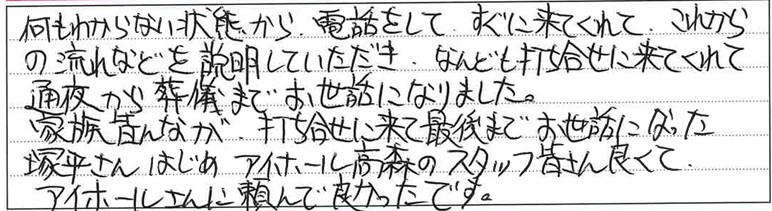 何もわからない状態から、電話をして、すぐに来てくれて、これから
の流れなどを説明していただき、なんども打ち合せに来てくれて
通夜から葬儀までお世話になりました。
家族皆んなが、打ち合せに来て最後までお世話になった
塚平さんはじめ アイホール高森のスタッフ皆さん良くて、
アイホールさんに頼んで良かったです。